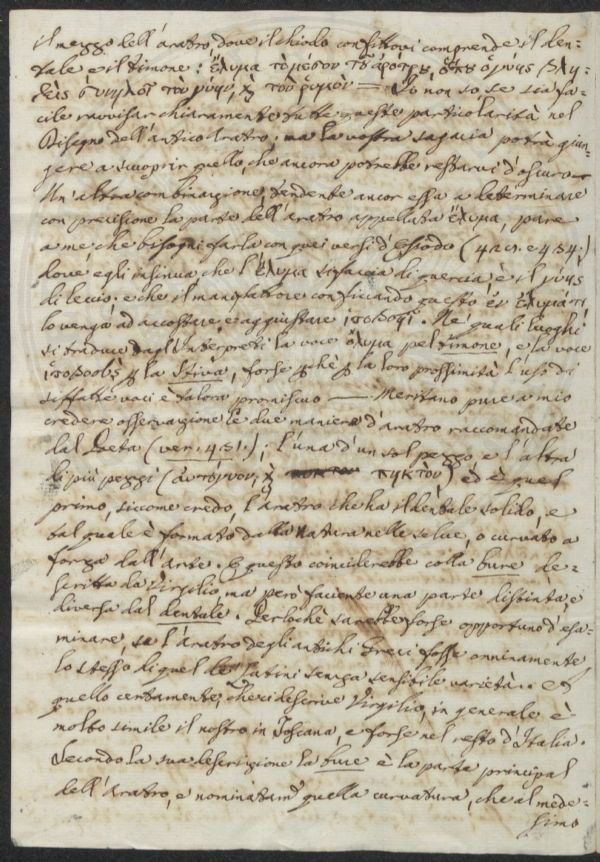 il mezzo dell'aratro, dove il chiodo confittovi comprende il den-
tale e il timone: ἔλυμα τὸ μέσον τοῦ ἀρότρου,
τὸν γύην, ϗ τὸν ῥυμόν — Io non so se sia fa-
cile ravvisar chiaramente tutte queste particolarità nel
Disegno dell'antico Aratro: ma la vostra sagacia potrà giun-
gere a scuoprir quello, che ancora potrebbe restarvi d'oscuro —
Un'altra combinazione tendente ancor essa a determinare
con precisione la parte dell'aratro appellata ἔλυμα, pare
a me che bisogni farla con quei versi d'Esiodo (429. e 434.)
dove egli insinua, che l'ἔλυμα si faccia di quercia, e il γύης
di leccio: e che il manifattore conficcando questo ἐν ἐλύματι
lo venga ad accostare e aggiustare ἱστοβοῆϊ. Ne' quali luoghi
si traduce dagl'Interpreti la voce ἔλυμα pel timone, e la voce
ἱστοβοεὺς p la Stiva, forse pchè p la loro prossimità l'uso di
siffatte voci è talora promiscuo — Meritano pure a mio
credere osservazione le due maniere d'aratro raccomandate
dal Poeta (ver. 431.); l'una d'un sol pezzo e l'altra
di più pezzi (αὐτόγυον, ϗ πηκτὸν) ed è quel
primo, siccome credo, l'aratro che ha il dentale solido, e
tal quale è formato dalla Natura nelle selve, o curvato a
forza dall'arte. E questo coinciderebbe colla bure de-
scritta da Virgilio, ma però faciente una parte distinta, e
diversa dal dentale. Perlochè sarebbe forse opportuno d'esa-
minare, se l'aratro degli antichi Greci fosse onninamente
lo stesso di quel de' Latini senza sensibile varietà. E
quello certamente, che ci descrive Virgilio, in generale è
molto simile il nostro in Toscana, e forse nel resto d'Italia.
Secondo la sua descrizione la bure è la parte principal
dell'Aratro, e nominatam.e quella curvatura, che al mede-
simo